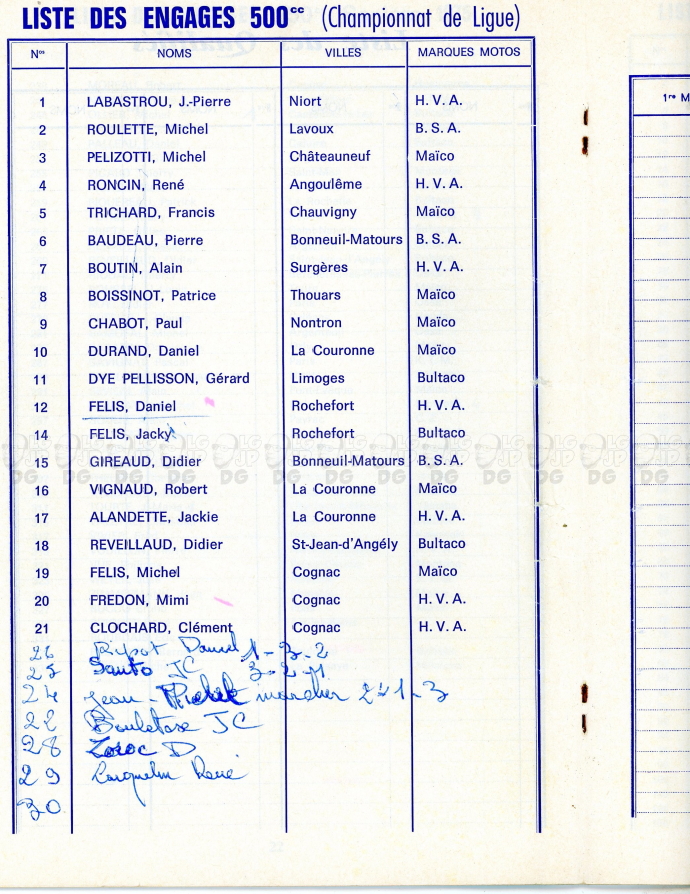 LISTE DES ENGAGES 500cc (Championnat de Ligue)
Nos NOMS VILLES MARQUES MOTOS
1 LABASTROU, J.-Pierre Niort H. V. A.
2 ROULETTE, Michel Lavoux B. S. A.
3 PELIZOTTI, Michel Châteauneuf Maïco
4 RONCIN, René Angoulême H. V. A.
5 TRICHARD, Francis Chauvigny Maïco
6 BAUDEAU, Pierre Bonneuil-Matours B. S. A.
7 BOUTIN, Alain Surgères H. V. A.
8 BOISSINOT, Patrice Thouars Maïco
9 CHABOT, Paul Nontron Maïco
10 DURAND, Daniel La Couronne Maïco
11 DYE PELLISSON, Gérard Limoges Bultaco
12 FELIS, Daniel Rochefort H. V. A.
14 FELIS, Jacky Rochefort Bultaco
15 GIREAUD, Didier Bonneuil-Matours B. S. A.
16 VIGNAUD, Robert La Couronne Maïco
17 ALANDETTE, Jackie La Couronne H. V. A.
18 REVEILLAUD, Didier St-Jean-d'Angély Bultaco
19 FELIS, Michel Cognac Maïco
20 FREDON, Mimi Cognac H. V. A.
21 CLOCHARD, Clément Cognac H. V. A.
Daniel 1-3-2
25 Santo JC 3-2-1
24 Jean-Michel
22 JC
28 D
29 René
30
1re M